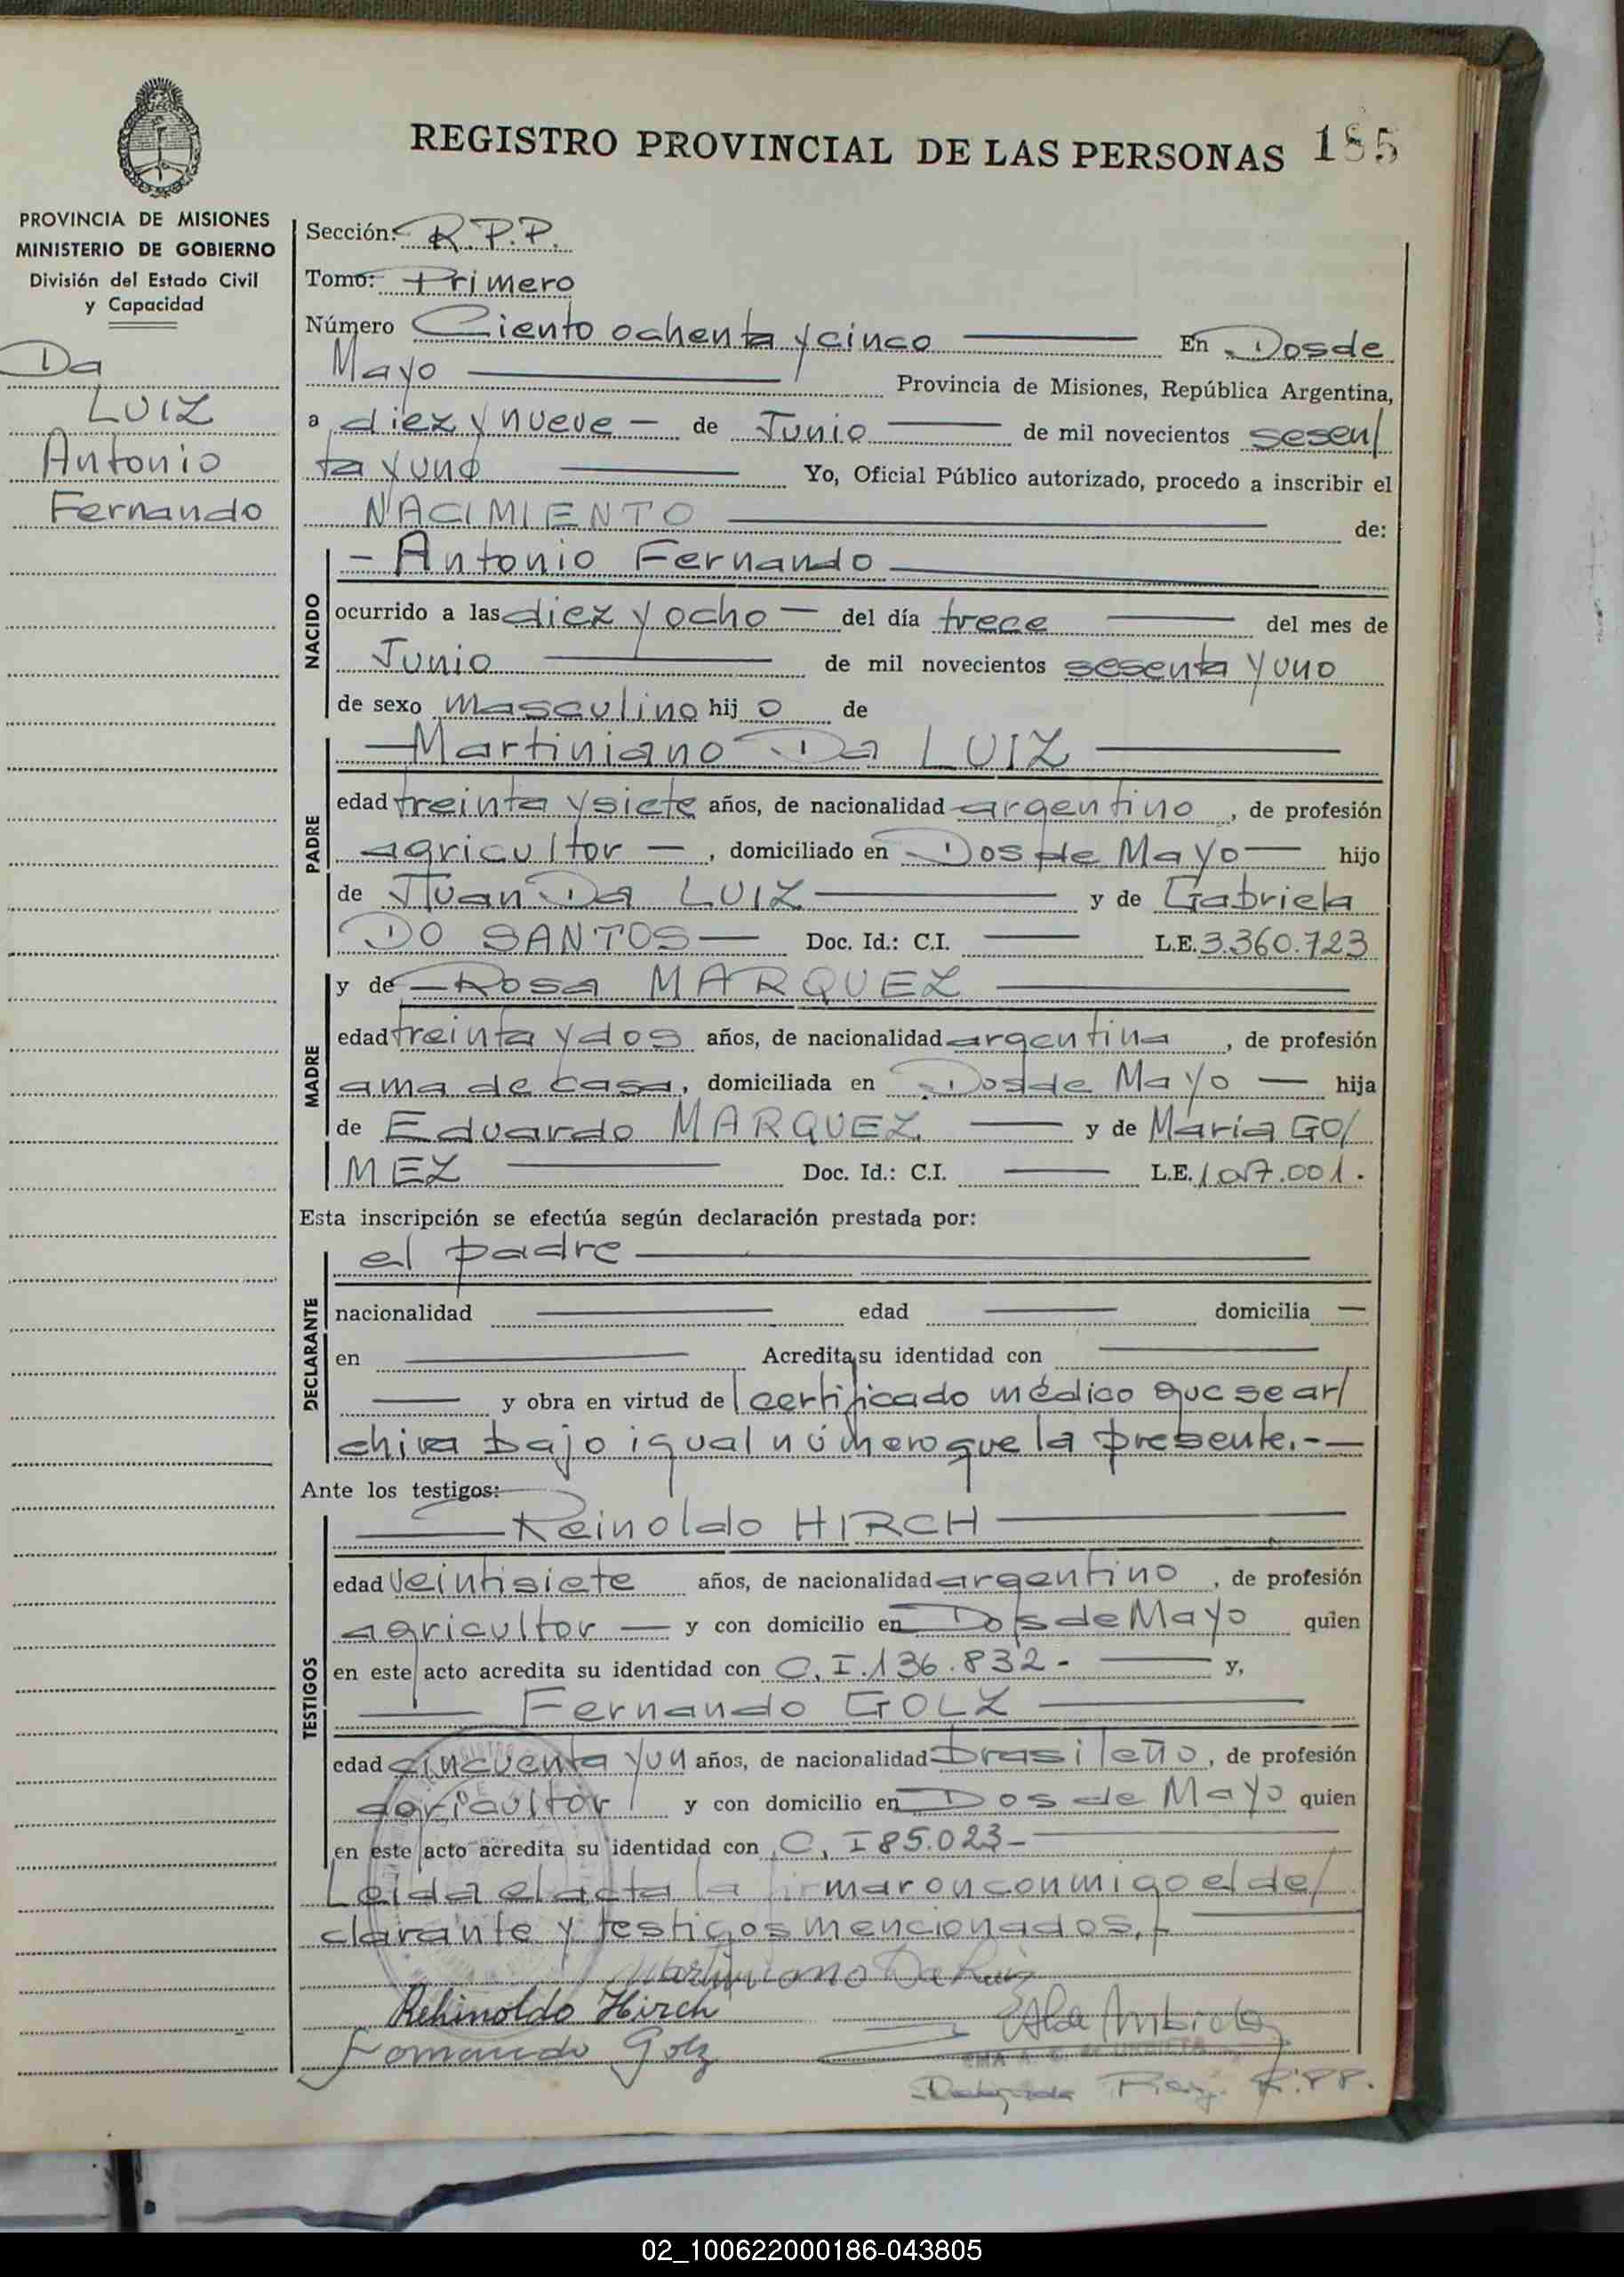 REGISTRO PROVINCIAL DE LAS PERSONAS 185
PROVINCIA DE MISIONES
MINISTERIO DE GOBIERNO
División del Estado Civil
y Capacidad
Da
LUIZ
Antonio
Fernando
Sección: R.P.P.
Tomo: Primero
Número Ciento ochenta y cinco En Dos de
Mayo Provincia de Misiones, República Argentina,
a diez y nueve de Junio de mil novecientos sesen/
ta y uno Yo, Oficial Público autorizado, procedo a inscribir el
NACIMIENTO de:
NACIDO
- Antonio Fernando
ocurrido a las diez y ocho - del día trece del mes de
Junio de mil novecientos sesenta y uno
de sexo masculino hij o de
PADRE
Martiniano Da LUIZ
edad treinta y siete años, de nacionalidad argentino, de profesión
agricultor -, domiciliado en Dos de Mayo - hijo
de Juan Da LUIZ y de Gabriela
DO SANTOS - Doc. Id.: C.I. L.E. 3.360.723
MADRE
y de - Rosa MARQUEZ
edad treinta y dos años, de nacionalidad argentina, de profesión
ama de casa, domiciliada en Dos de Mayo - hija
de Eduardo MARQUEZ. y de Maria GO/
MEZ Doc. Id.: C.I. L.E.
Esta inscripción se efectúa según declaración prestada por:
DECLARANTE
el padre
nacionalidad edad domicilia
en Acredita su identidad con
y obra en virtud de certificado médico que se ar/
chiva bajo igual número que la presente.-
Ante los testigos:
TESTIGOS
Reinoldo HIRCH
edad veintisiete años, de nacionalidad argentino, de profesión
agricultor - y con domicilio en Dos de Mayo quien
en este acto acredita su identidad con C.I. 136.832- y,
Fernando GOLZ
edad cincuenta y un años, de nacionalidad brasileño, de profesión
agricultor y con domicilio en Dos de Mayo quien
en este acto acredita su identidad con C.I 85.023-
Leida el acta la firmaron conmigo el de/
clarante y testigos mencionados.
Martiniano Da Luiz
Rehinoldo Hirch
Fernando Golz
R.P.P.
02_100622000186-043805